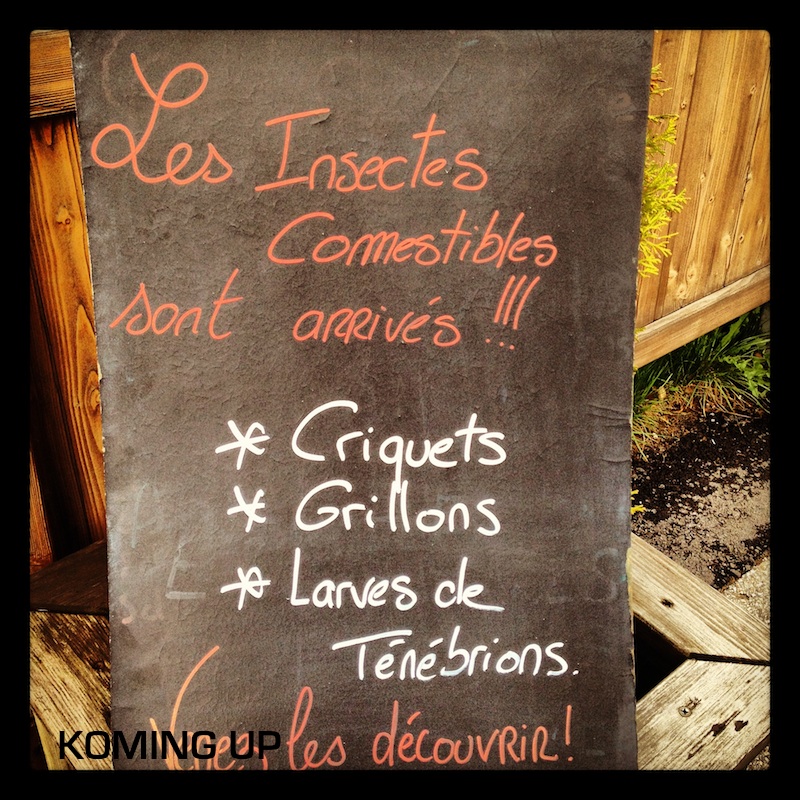 Les Insectes
Comestibles
sont arrivés !!!
* Criquets
* Grillons
* Larves de
Ténébrions.
les découvrir!
KOMING UP